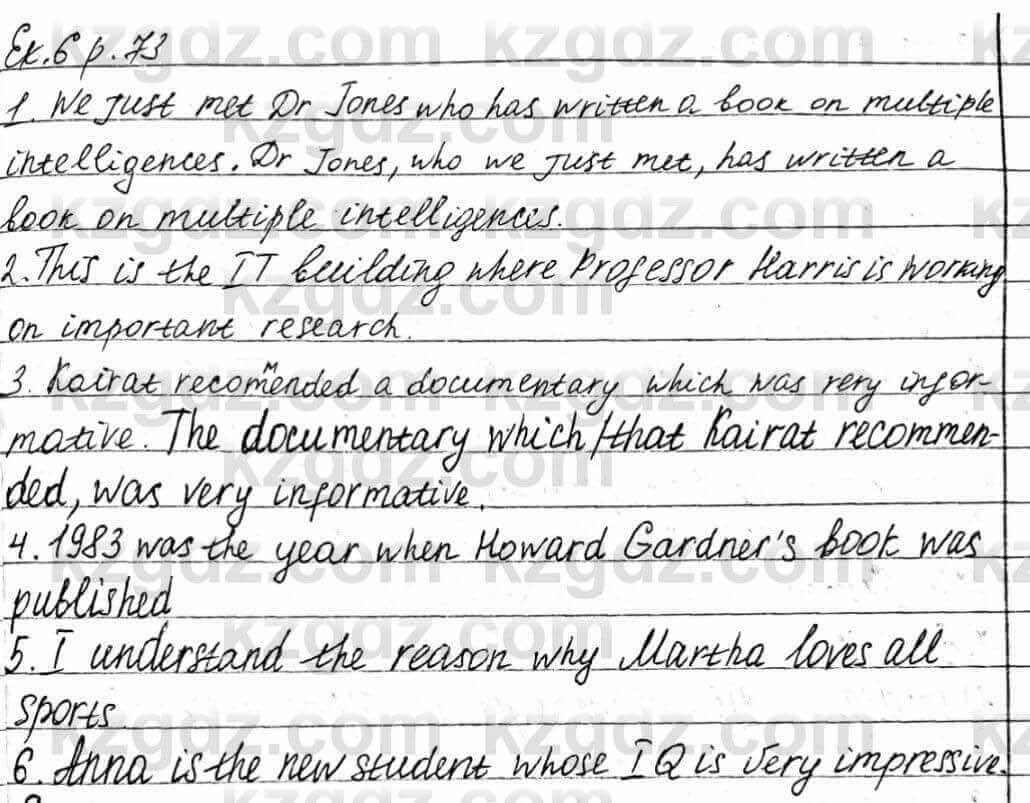 Ex.6 p.73
1. We just met Dr Jones who has written a book on multiple
intelligences. Dr Jones, who we just met, has written a
book on multiple intelligences.
2. This is the IT building where Professor Harris is working
on important research.
3. Kairat recommended a documentary which was very infor-
mative. The documentary which/that Kairat recommen-
ded, was very informative.
4. 1983 was the year when Howard Gardner's book was
published
5. I understand the reason why Martha loves all
sports
6. Anna is the new student whose IQ is very impressive.
kzgdz.com